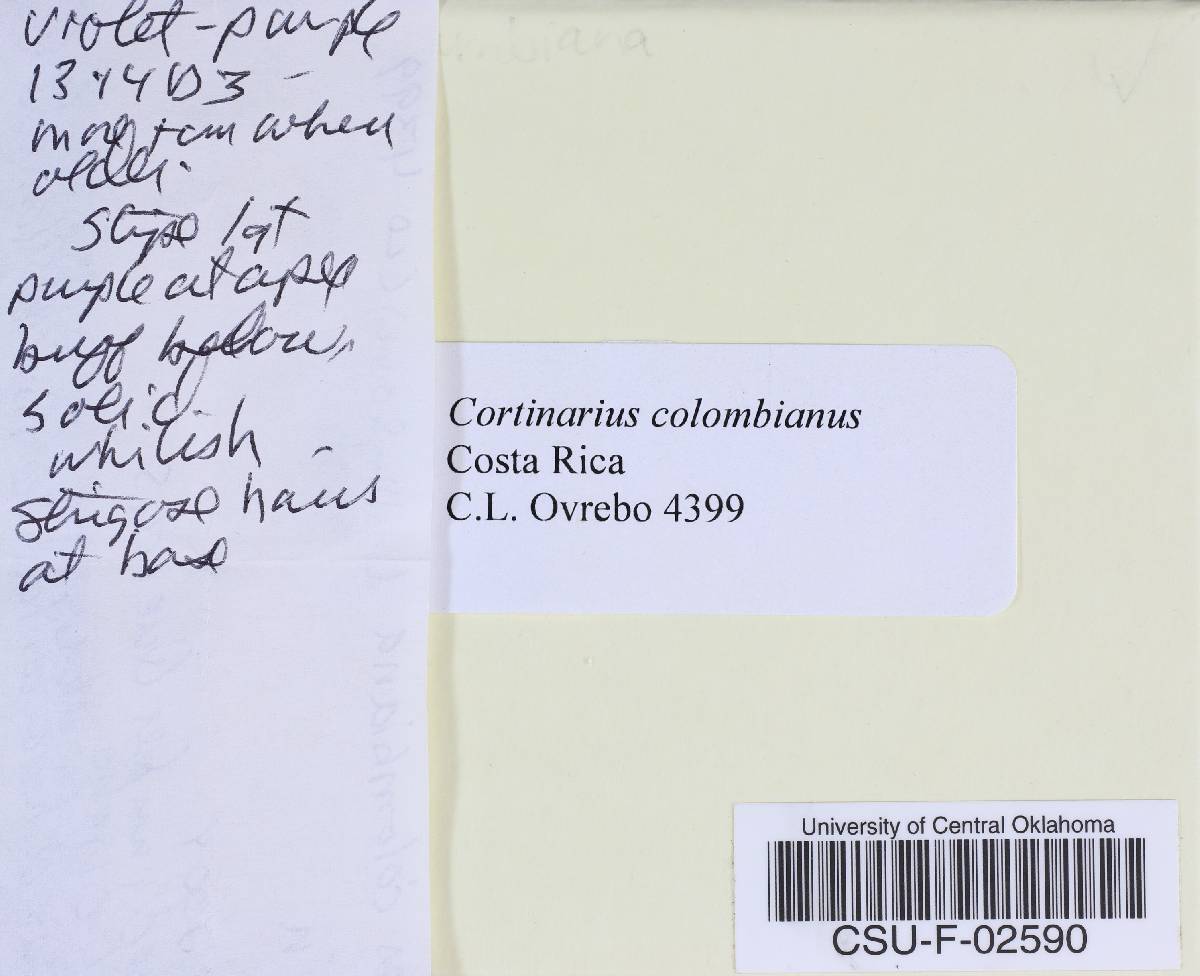 violet-purple
13 + 14 D3 -
margin when
older.
Stipe lgt
purple at apex
buff below,
solid -
whitish -
strigose hairs
at base
Cortinarius colombianus
Costa Rica
C.L. Ovrebo 4399
University of Central Oklahoma
CSU-F-02590